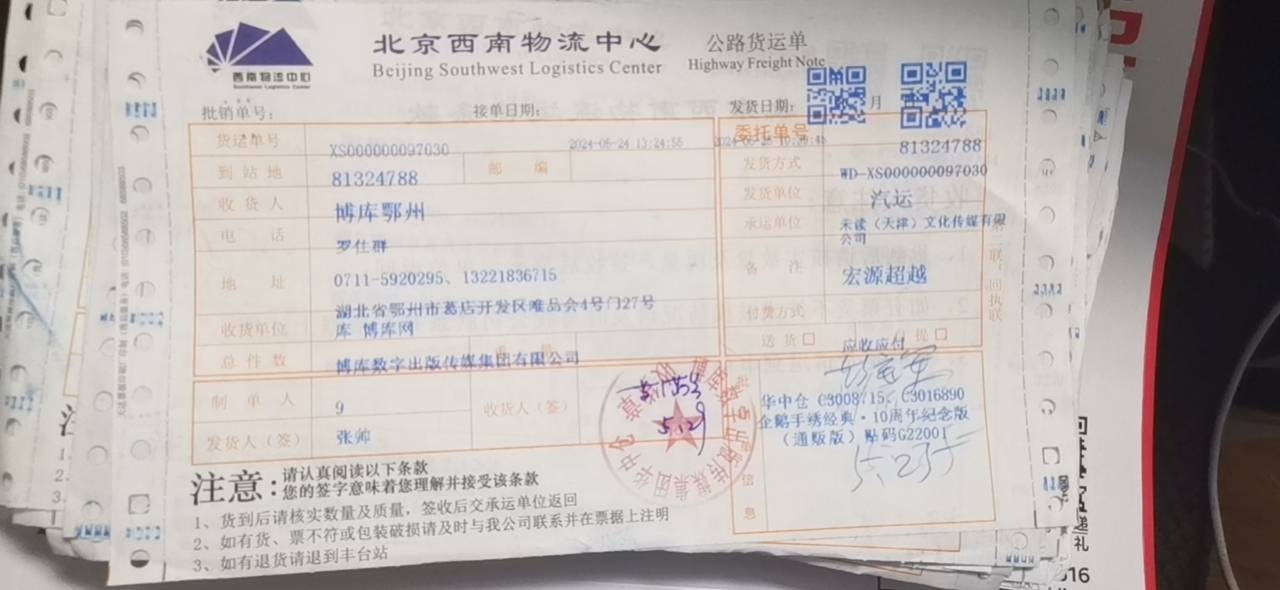 北京西南物流中心
公路货运单
西南物流中心
Southwest Logistics Center
Beijing Southwest Logistics Center
Highway Freight Note
批销单号:
接单日期:
发货日期:
月
货运单号
XS000000097030
2024-05-24 13:24:55
委托单号
81324788
到站地
81324788
邮 编
发货方式
WD-XS000000097030
收货人
博库鄂州
发货单位
汽运
电 话
罗仕群
承运单位
未读（天津）文化传媒有限公司
地 址
0711-5920295、13221836715
备 注
宏源超越
湖北省鄂州市葛店开发区唯品会4号门27号
库 博库网
收货单位
付费方式
送货□
提□
应收应付
总件数
博库数字出版传媒集团有限公司
制单人
9
收货人（签）
发货人（签）
张帅
5.29
华中仓 C3008715、C3016890
企鹅手绣经典·10周年纪念版
（通贩版）贴码G22001
信
息
第二联：回执联
注意:
请认真阅读以下条款
您的签字意味着您理解并接受该条款
1、货到后请核实数量及质量，签收后交承运单位返回
2、如有货、票不符或包装破损请及时与我公司联系并在票据上注明
3、如有退货请退到丰台站